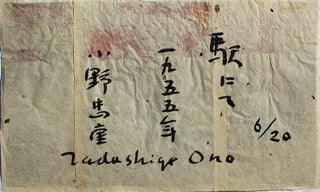 駅にて
一九五五年
小野忠重
Tadashige Ono
6/20